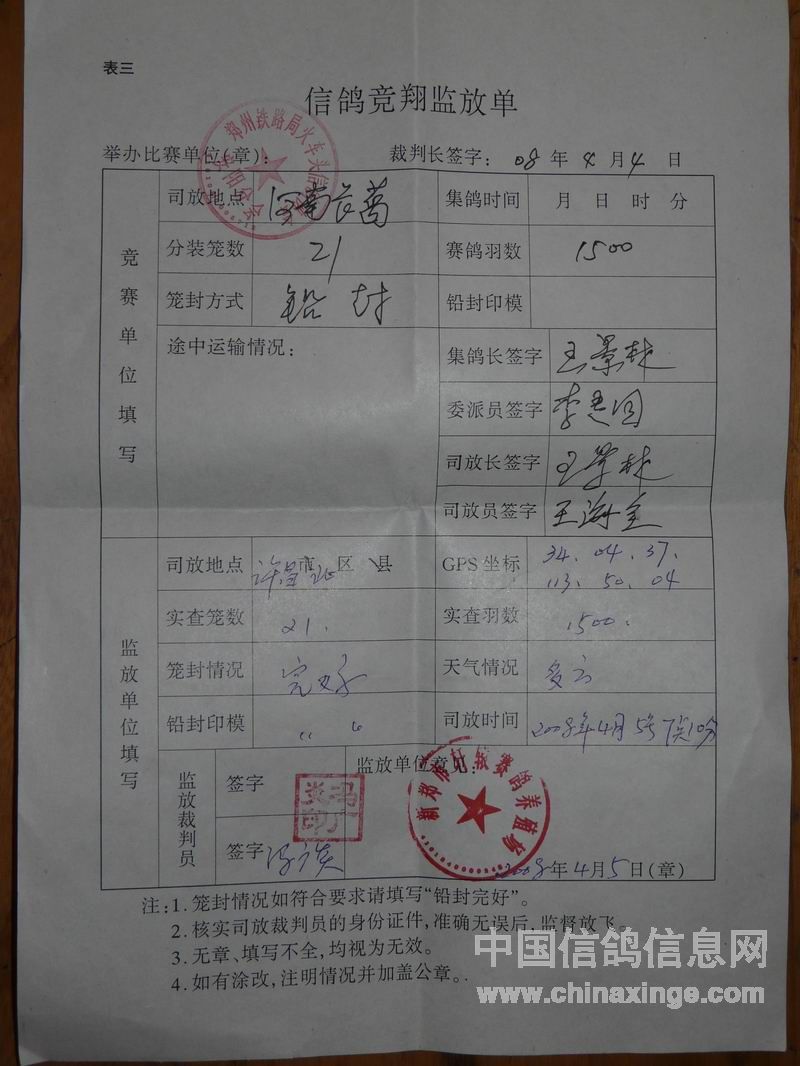 表三
信鸽竞翔监放单
举办比赛单位(章): 裁判长签字: 08年4月4日
郑州铁路局火车头信鸽
竞赛单位填写
司放地点 河南长葛 集鸽时间 月 日 时 分
分装笼数 21 赛鸽羽数 1500
笼封方式 铅封 铅封印模
途中运输情况: 集鸽长签字 王景林
委派员签字 李
司放长签字 王景林
司放员签字 王海全
监放单位填写
司放地点 许昌 市 区 县 GPS坐标 34.04.37.
113.50.04
实查笼数 21. 实查羽数 1500.
笼封情况 完好 天气情况 多云
铅封印模 司放时间 2008年4月5号7点10分
监放裁判员 签字 监放单位意见:
冯广炎印
赛鸽养殖场
签字 冯广炎 2008年4月5日(章)
注:1. 笼封情况如符合要求请填写“铅封完好”。
2. 核实司放裁判员的身份证件,准确无误后,监督放飞。
3. 无章、填写不全,均视为无效。
4. 如有涂改,注明情况并加盖公章。.
中国信鸽信息网
www.chinaxinge.com